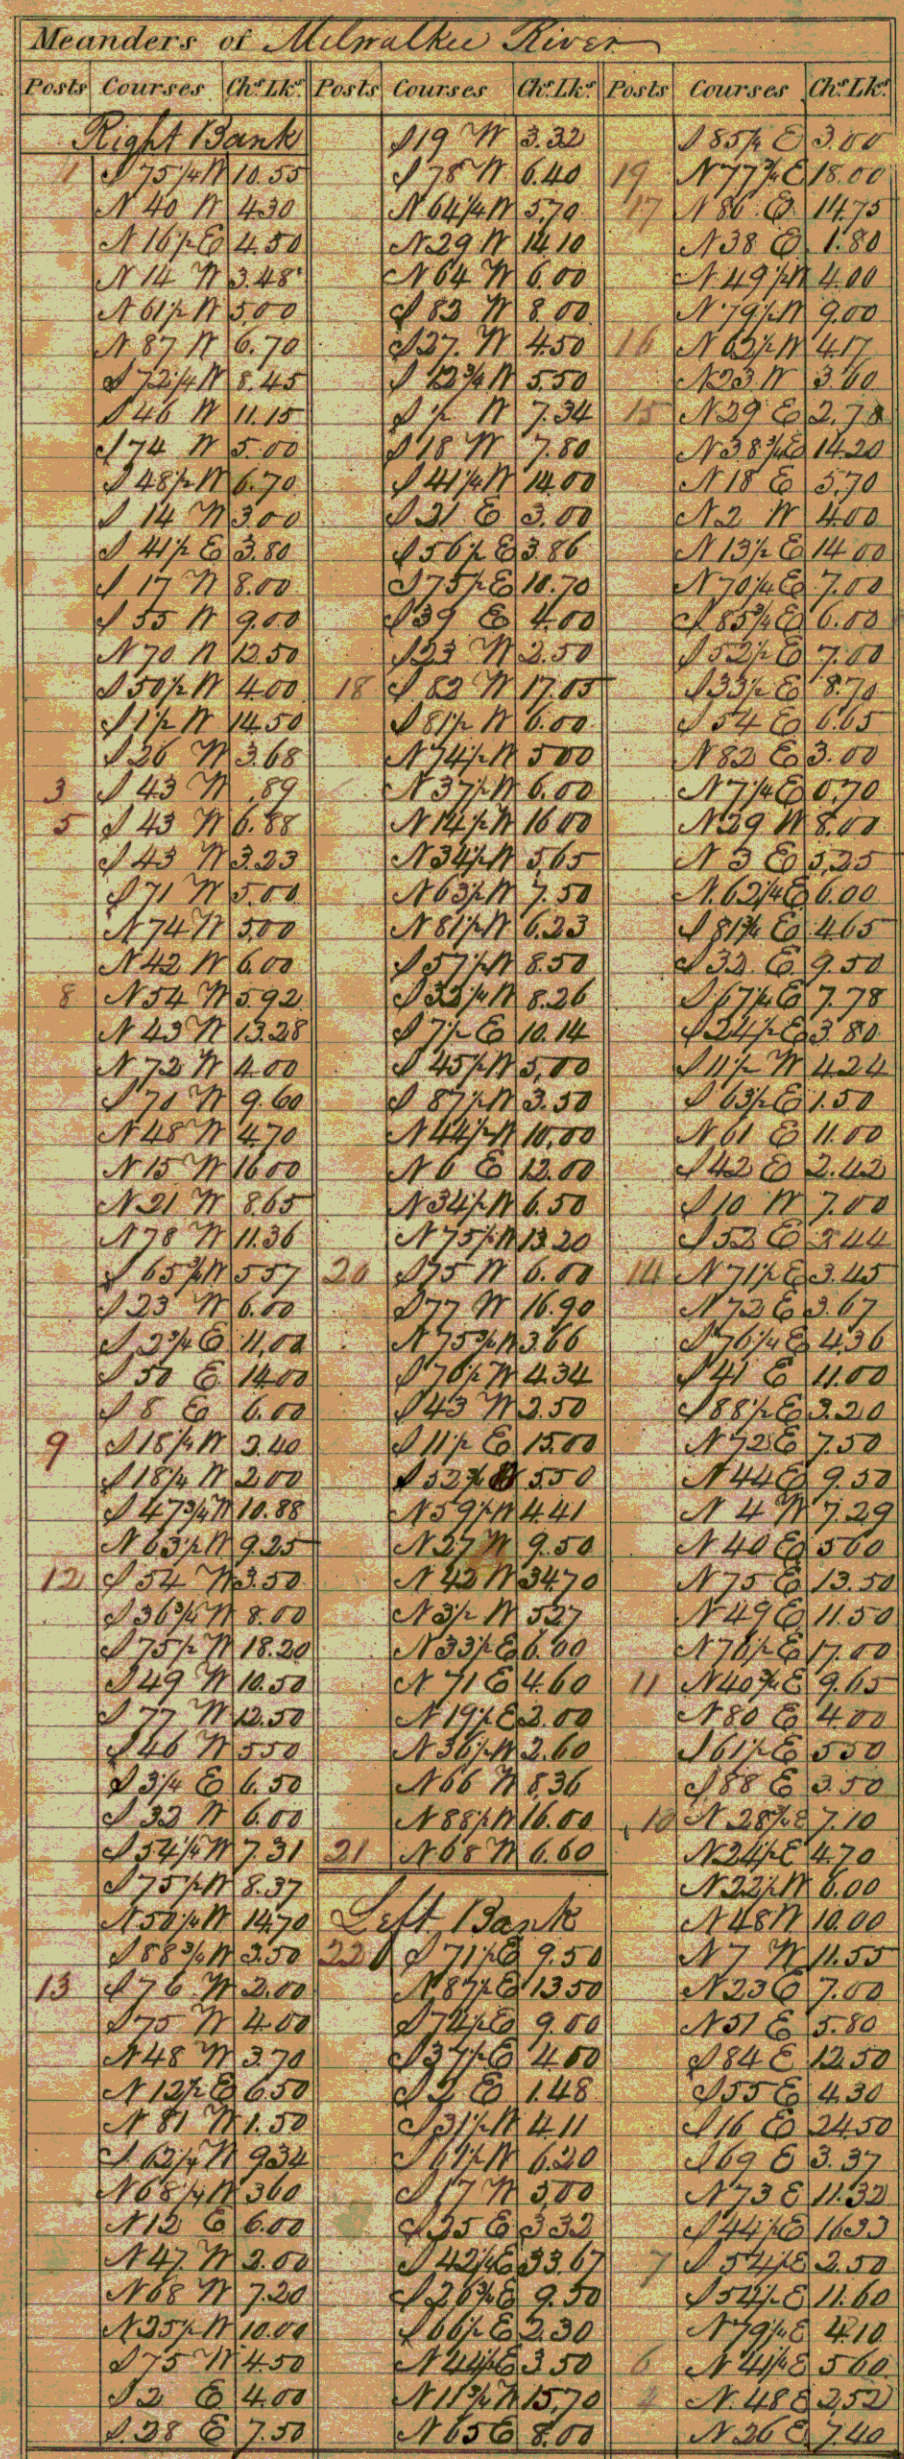 Meanders of Milwalkee River
Posts Courses Chs. Lks. Posts Courses Chs. Lks. Posts Courses Chs. Lks.
Right Bank
1 S 75 1/4 W 10.55
N 40 W 4.30
N 16 1/2 E 4.50
N 14 W 3.48
N 61 1/2 W 5.00
N 87 W 6.70
S 72 1/4 W 8.45
S 46 W 11.15
S 74 W 5.00
S 48 1/2 W 6.70
S 14 W 3.00
S 41 1/2 E 3.80
S 17 W 8.00
S 55 W 9.00
N 70 W 12.50
S 50 1/2 W 4.00
S 1 1/2 W 14.50
S 26 W 3.68
3 S 43 W .89
5 S 43 W 6.88
S 43 W 3.23
S 71 W 5.00
N 74 W 5.00
N 42 W 6.00
8 N 54 W 5.92
N 43 W 13.28
N 72 W 4.00
S 70 W 9.60
N 48 W 4.70
N 15 W 16.00
N 21 W 8.65
N 78 W 11.36
S 65 3/4 W 5.57
S 23 W 6.00
S 2 3/4 E 11.00
S 50 E 14.00
S 8 E 6.00
9 S 18 1/4 W 2.40
S 18 1/4 W 2.00
S 47 3/4 W 10.88
N 63 1/2 W 9.25
12 S 54 W 3.50
S 36 3/4 W 8.00
S 75 1/2 W 18.20
S 49 W 10.50
S 77 W 12.50
S 46 W 5.50
S 3 1/4 E 6.50
S 32 W 6.00
S 54 1/4 W 7.31
S 75 1/2 W 8.37
N 50 1/4 W 14.70
S 88 3/4 W 3.50
13 S 76 W 2.00
S 75 W 4.00
N 48 W 3.70
N 12 1/2 E 6.50
N 81 W 1.50
S 62 1/4 W 9.34
N 68 1/4 W 3.60
N 12 E 6.00
N 47 W 2.00
N 68 W 7.20
N 25 1/2 W 10.00
S 75 W 4.50
S 2 E 4.00
S 28 E 7.50
S 19 W 3.32
S 78 W 6.40
N 64 1/4 W 5.70
N 29 W 14.10
N 64 W 6.00
S 82 W 8.00
S 27 W 4.50
S 12 3/4 W 5.50
S 1/2 W 7.34
S 18 W 7.80
S 41 1/4 W 14.00
S 21 E 3.00
S 56 1/2 E 3.86
S 75 1/2 E 10.70
S 39 E 4.00
S 23 W 2.50
18 S 82 W 17.05
S 81 1/2 W 6.00
N 74 1/2 W 5.00
N 37 1/2 W 6.00
N 14 1/2 W 16.00
N 34 1/2 W 5.65
N 63 1/2 W 7.50
N 81 1/2 W 6.23
S 57 1/2 W 8.50
S 32 1/4 W 8.26
S 7 1/2 E 10.14
S 45 1/2 W 5.00
S 87 1/2 W 3.50
N 44 1/2 W 10.00
N 6 E 12.00
N 34 1/2 W 6.50
N 75 1/2 W 13.20
20 S 75 W 6.00
S 77 W 16.90
N 75 3/4 W 3.66
S 76 1/2 W 4.34
S 43 W 2.50
S 11 1/2 E 15.00
S 52 3/4 W 5.50
N 59 1/2 W 4.41
N 27 W 9.50
N 42 W 34.70
N 3 1/2 W 5.27
N 33 1/2 E 6.00
N 71 E 4.60
N 19 1/2 E 2.00
N 36 1/2 W 2.60
N 66 W 8.36
N 88 1/2 W 16.00
21 N 68 W 6.60
Left Bank
22 S 71 1/2 E 9.50
N 87 1/2 E 13.50
S 74 1/2 E 9.00
S 37 1/2 E 4.00
S 2 E 1.48
S 31 1/2 W 4.11
S 61 1/2 W 6.20
S 17 W 5.00
S 25 E 3.32
S 42 1/4 E 33.67
S 26 3/4 E 9.50
S 66 1/2 E 2.30
N 44 1/2 E 3.50
N 11 3/4 W 15.70
N 65 E 8.00
S 85 1/4 E 3.00
19 N 77 3/4 E 18.00
17 N 86 E 14.75
N 38 E 1.80
N 49 1/2 W 4.00
N 79 1/2 W 9.00
16 N 62 1/2 W 4.17
N 23 W 3.60
15 N 29 E 2.70
N 38 3/4 E 14.20
N 18 E 5.70
N 2 W 4.00
N 13 1/2 E 14.00
N 70 1/4 E 7.00
S 85 3/4 E 6.00
S 52 1/2 E 7.00
S 33 1/2 E 8.70
S 54 E 6.65
N 82 E 3.00
N 7 1/4 E 0.70
N 29 W 8.00
N 3 E 5.25
N 62 1/4 E 6.00
S 81 3/4 E 4.65
S 32 E 9.50
S 67 1/4 E 7.78
S 24 1/2 E 3.80
S 11 1/2 W 4.24
S 63 1/2 E 1.50
N 61 E 11.00
S 42 E 2.42
S 10 W 7.00
S 52 E 2.44
14 N 71 1/2 E 3.45
N 72 E 3.67
S 76 1/4 E 4.36
S 41 E 11.00
S 88 1/2 E 3.20
N 72 E 7.50
N 44 E 9.50
N 4 W 7.29
N 40 E 5.00
N 75 E 13.50
N 49 E 11.50
N 76 1/2 E 17.00
11 N 40 3/4 E 9.65
N 80 E 4.00
S 61 1/2 E 5.50
S 88 E 3.50
10 N 28 3/4 E 7.10
N 24 1/2 E 4.70
N 22 1/2 W 6.00
N 48 W 10.00
N 7 W 11.55
N 23 E 7.00
N 51 E 5.80
S 84 E 12.50
S 55 E 4.30
S 16 E 24.50
S 69 E 3.37
N 73 E 11.32
S 44 1/2 E 16.33
7 S 54 1/2 E 2.50
S 54 1/2 E 11.60
N 79 1/4 E 4.10
6 N 41 1/4 E 5.60
4 N 48 E 2.52
N 26 E 7.40